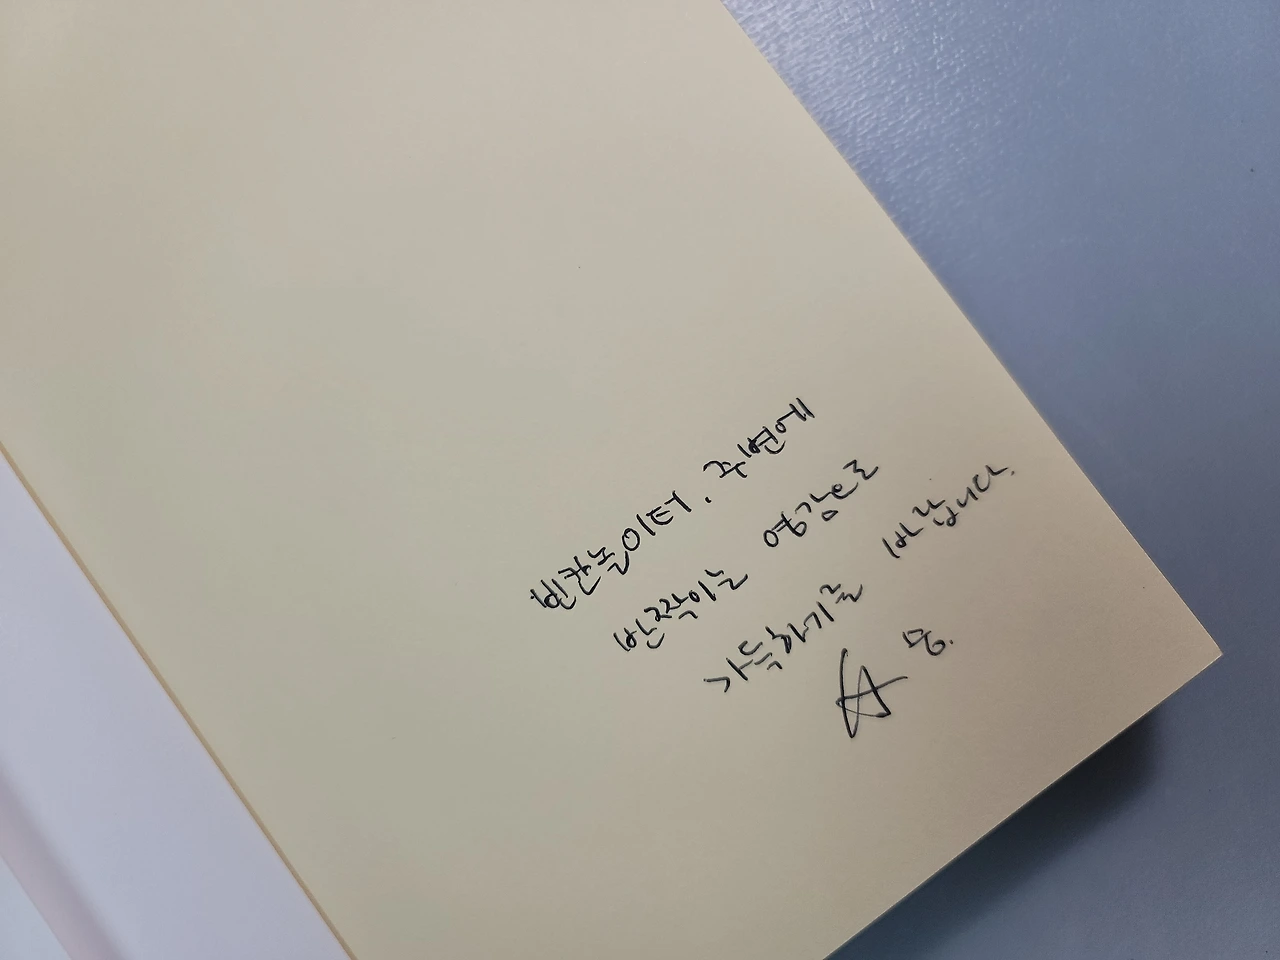 빈칸놀이터. 주변에
반짝이는 영감으로
가득하기를 바랍니다.